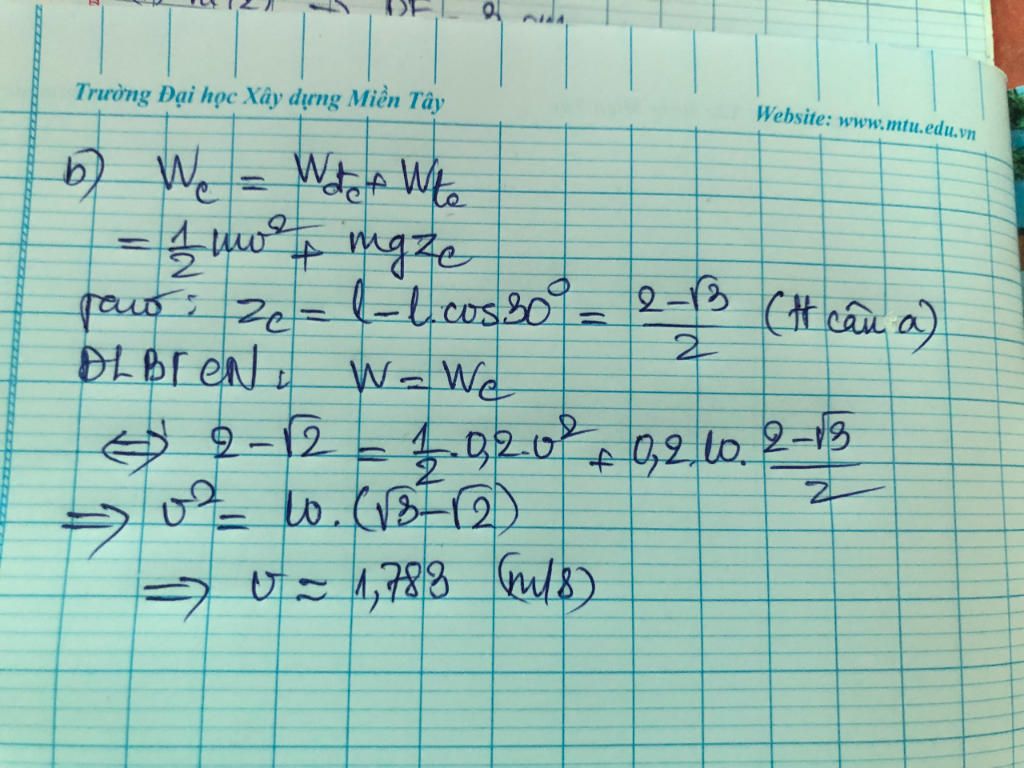 Trường Đại học Xây dựng Miền Tây
Website: www.mtu.edu.vn
b) W_c = W_đc + W_tc
= 1/2 mv² + mgz_c
z_c = l - l.cos30° = (2-√3)/2 (tt câu a)
ĐLBTCN: W = W_c
⇔ 2 - √2 = 1/2 . 0,2 . v² + 0,2 . 10 . (2-√3)/2
⇒ v² = 10 . (√3 - √2)
⇒ v ≈ 1,783 (m/s)